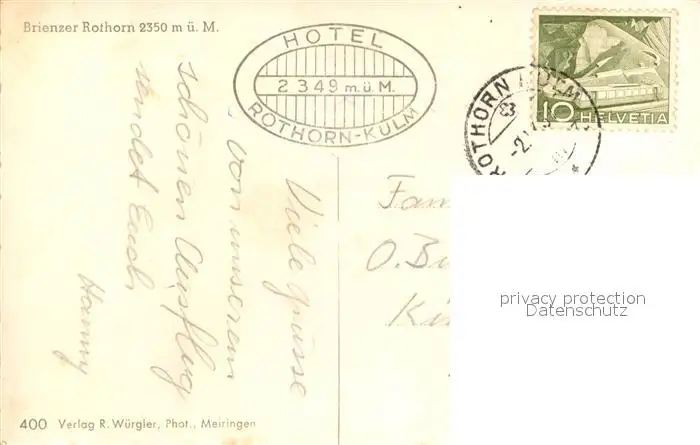 Brienzer Rothorn 2350 m ü. M.
HOTEL
2349 m.ü.M.
ROTHORN-KULM
ROTHORN KULM
10 HELVETIA
Viele Grüsse
von unserem
schönen Ausflug
sendet Euch
Hanny
Fam
O. B
K
privacy protection
Datenschutz
400 Verlag R. Würgler, Phot., Meiringen